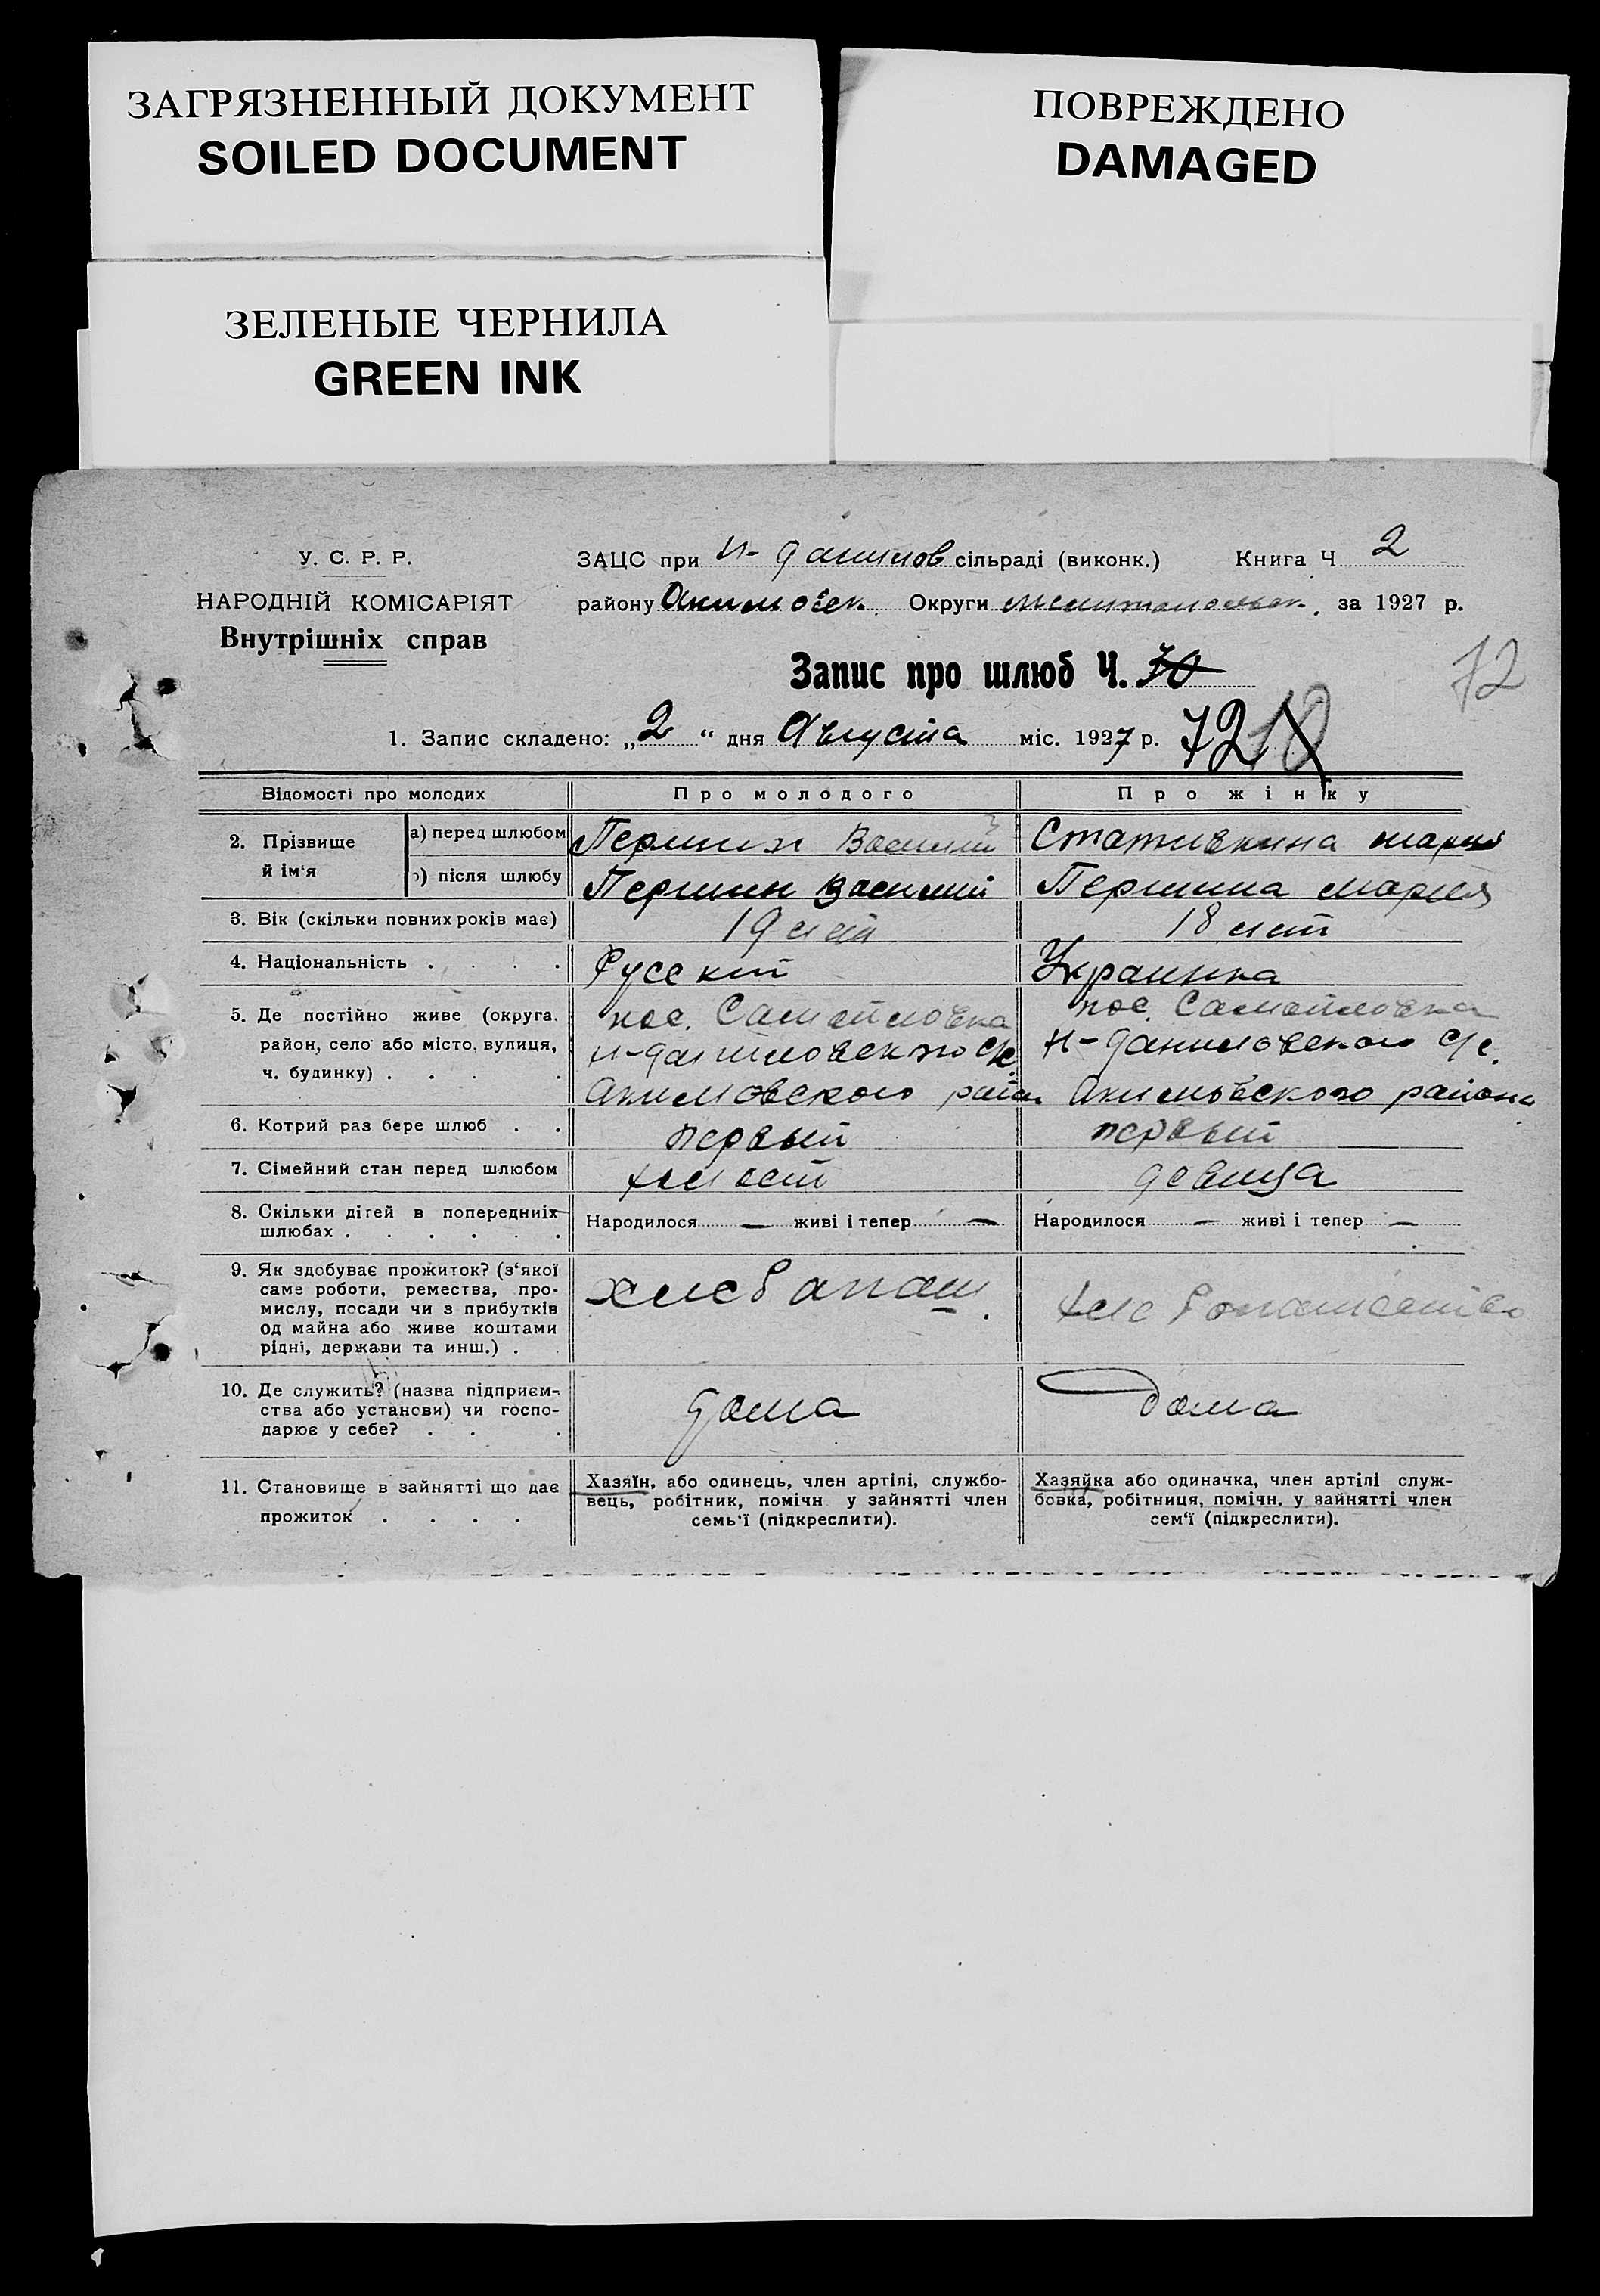 ЗАГРЯЗНЕННЫЙ ДОКУМЕНТ
SOILED DOCUMENT
ПОВРЕЖДЕНО
DAMAGED
ЗЕЛЕНЫЕ ЧЕРНИЛА
GREEN INK
У. С. Р. Р.
НАРОДНІЙ КОМІСАРІЯТ
Внутрішніх справ
ЗАЦС при Н-Данилов сільраді (виконк.) Книга Ч 2
району Акимовск. Округи Мелитопольск. за 1927 р.
Запис про шлюб Ч. 70
72
1. Запис складено: „2“ дня Августа міс. 1927 р. 72
Відомості про молодих Про молодого Про жінку
2. Прізвище й ім‘я
а) перед шлюбом Першин Василий Стативкина Мария
після шлюбу Першин Василий Першина Мария
3. Вік (скільки повних років має) 19 лет 18 лет
4. Національність . . . . Русский Украинка
5. Де постійно живе (округа, район, село або місто, вулиця, ч. будинку) . . . .
пос. Самойловка
Н-Даниловского с/с.
Акимовского район
пос. Самойловка
Н-Даниловского с/с.
Акимовского района
6. Котрий раз бере шлюб . . первый первый
7. Сімейний стан перед шлюбом холост девица
8. Скільки дітей в попередниіх шлюбах . . . . . .
Народилося — живі і тепер —
Народилося — живі і тепер —
9. Як здобуває прожиток? (з‘якої
саме роботи, ремества, про-
мислу, посади чи з прибутків
од майна або живе коштами
рідні, держави та инш.) .
хлебапаш.
хлебопашество
10. Де служить? (назва підприєм-
ства або установи) чи госпо-
дарює у себе? . . .
дома
дома
11. Становище в зайнятті що дає
прожиток . . . .
Хазяїн, або одинець, член артілі, службо-
вець, робітник, помічн у зайнятті член
семь‘ї (підкреслити).
Хазяйка або одиначка, член артілі служ-
бовка, робітниця, помічн. у зайнятті член
сем‘ї (підкреслити).